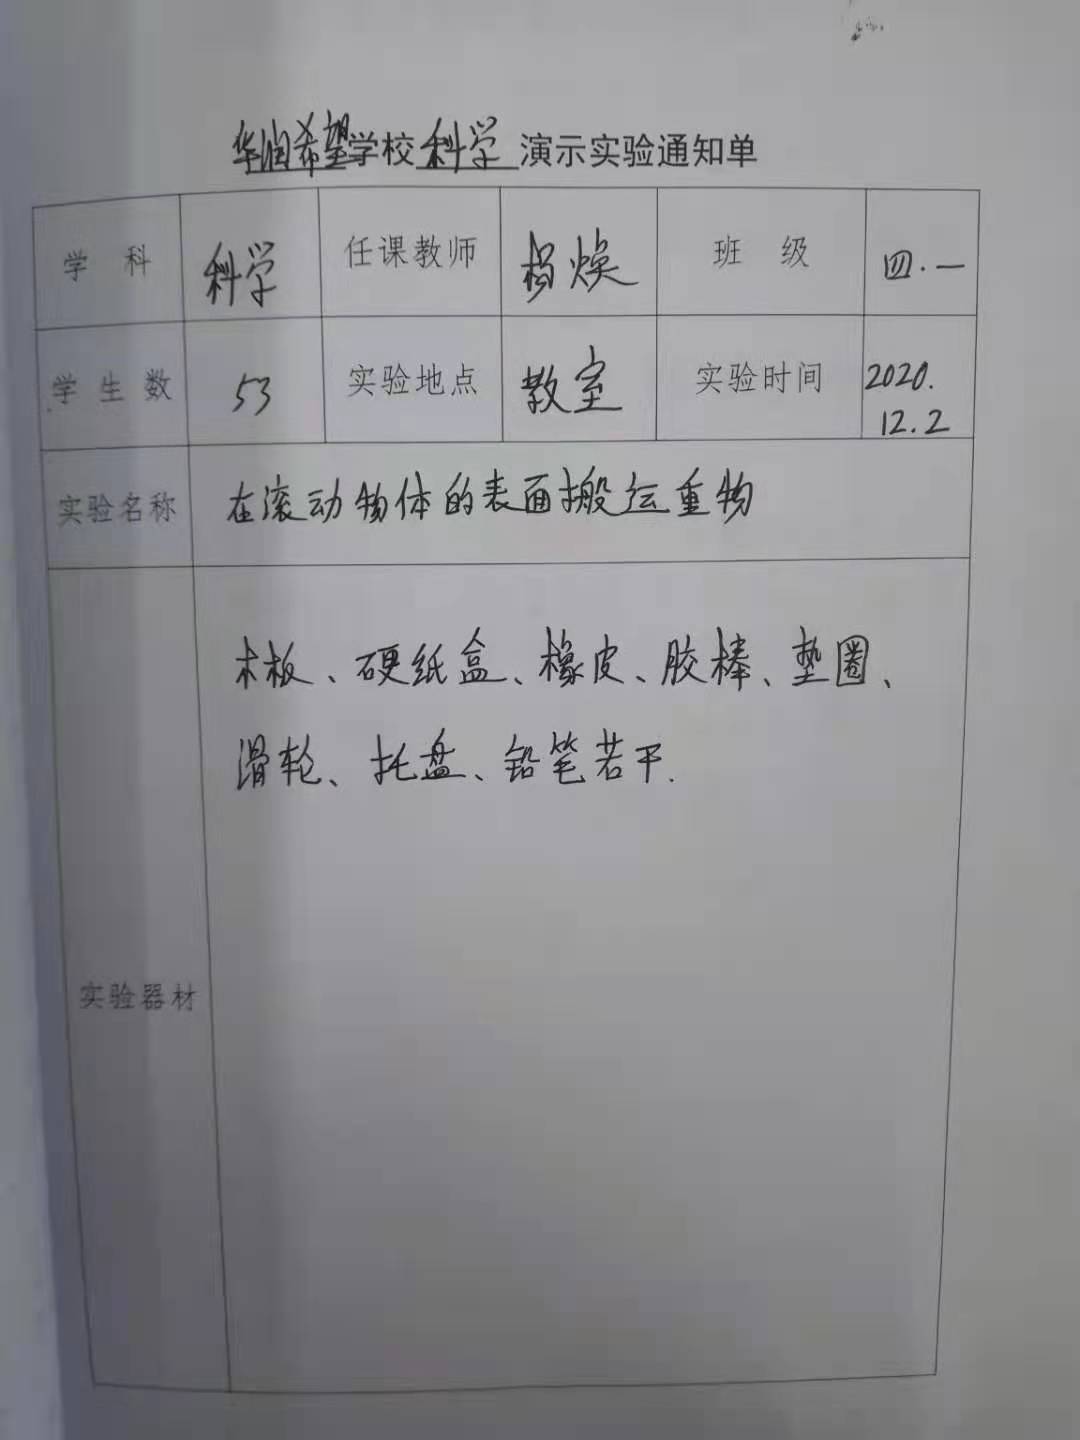 华润希望学校科学演示实验通知单
学 科 科学 任课教师 杨焕 班 级 四.一
学生数 53 实验地点 教室 实验时间 2020.
12.2
实验名称 在滚动物体的表面搬运重物
木板、硬纸盒、橡皮、胶棒、垫圈、
滑轮、托盘、铅笔若干.
实验器材